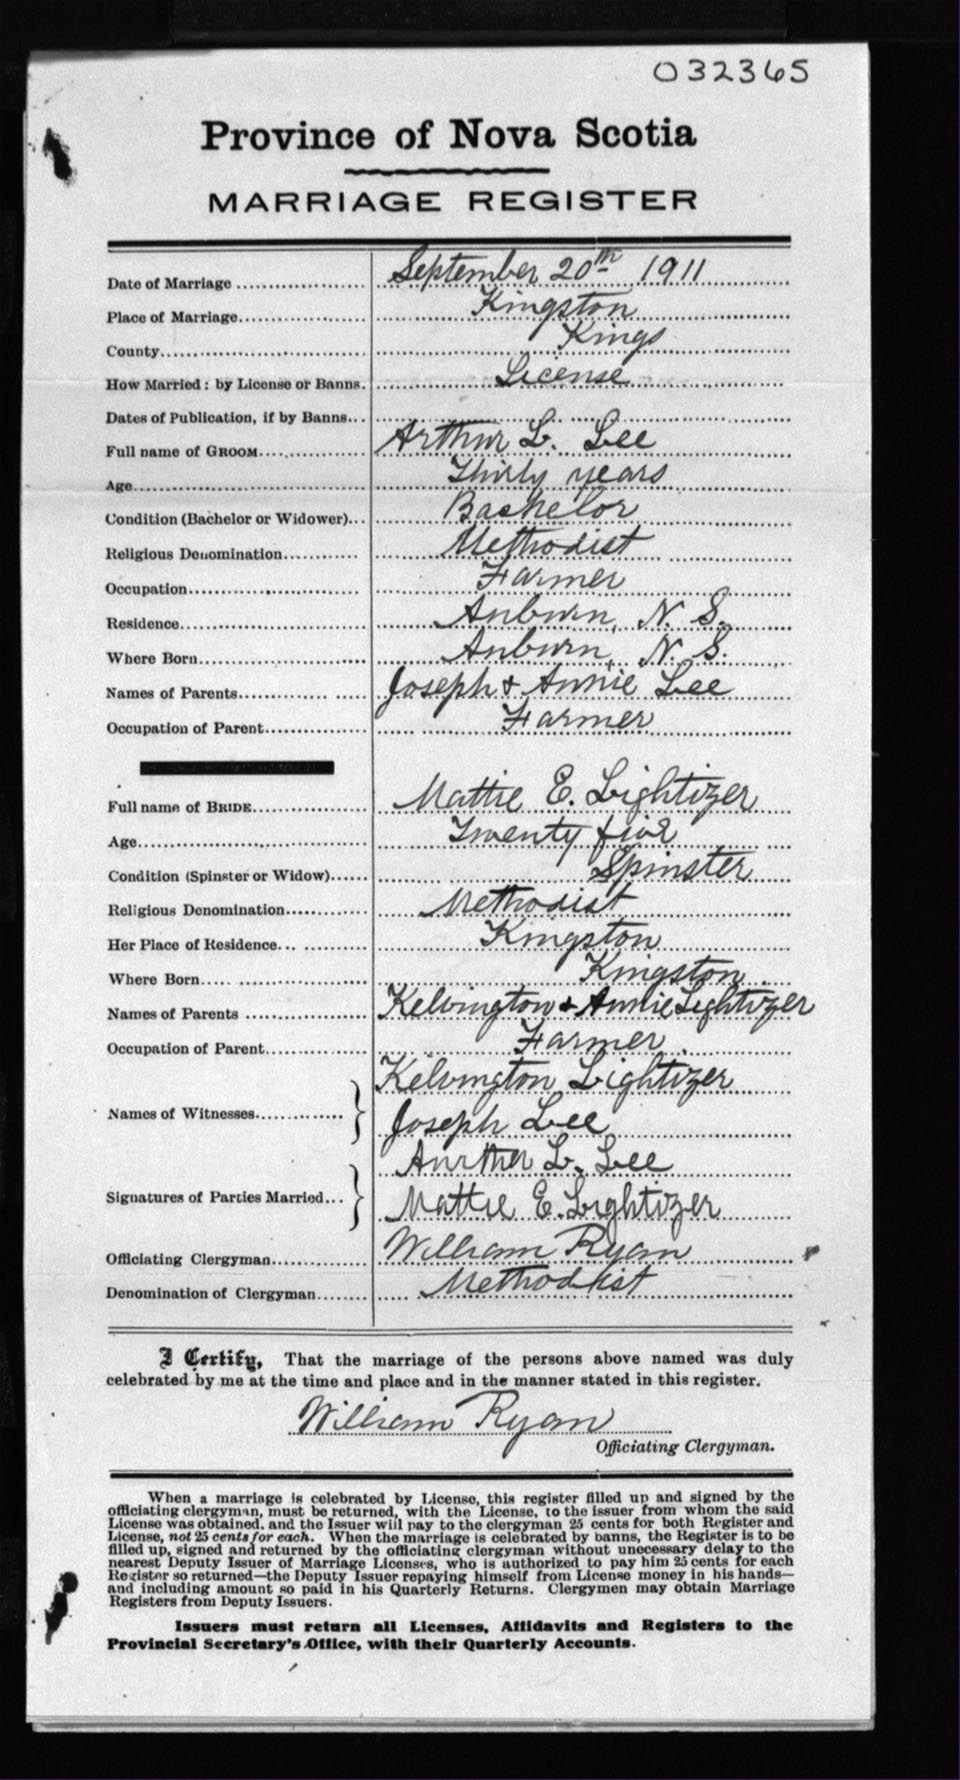 032365
Province of Nova Scotia
MARRIAGE REGISTER
Date of Marriage September 20th 1911
Place of Marriage Kingston
County Kings
How Married: by License or Banns. License
Dates of Publication, if by Banns
Full name of GROOM Arthur L. Lee
Age Thirty years
Condition (Bachelor or Widower) Bachelor
Religious Denomination Methodist
Occupation Farmer
Residence Auburn, N. S.
Where Born Auburn, N. S.
Names of Parents Joseph & Annie Lee
Occupation of Parent Farmer
Full name of BRIDE Mattie E. Lightizer
Age Twenty five
Condition (Spinster or Widow) Spinster
Religious Denomination Methodist
Her Place of Residence Kingston
Where Born Kingston
Names of Parents Kelvington & Annie Lightizer
Occupation of Parent Farmer
Kelvington Lightizer
Names of Witnesses
Joseph Lee
Aurther L. Lee
Signatures of Parties Married
Mattie E. Lightizer
Officiating Clergyman William Ryan
Denomination of Clergyman Methodist
I Certify, That the marriage of the persons above named was duly
celebrated by me at the time and place and in the manner stated in this register.
William Ryan
Officiating Clergyman.
When a marriage is celebrated by License, this register filled up and signed by the
officiating clergyman, must be returned, with the License, to the issuer from whom the said
License was obtained, and the Issuer will pay to the clergyman 25 cents for both Register and
License, not 25 cents for each. When the marriage is celebrated by banns, the Register is to be
filled up, signed and returned by the officiating clergyman without unnecessary delay to the
nearest Deputy Issuer of Marriage Licenses, who is authorized to pay him 25 cents for each
Register so returned—the Deputy Issuer repaying himself from License money in his hands—
and including amount so paid in his Quarterly Returns. Clergymen may obtain Marriage
Registers from Deputy Issuers.
Issuers must return all Licenses, Affidavits and Registers to the
Provincial Secretary's Office, with their Quarterly Accounts.